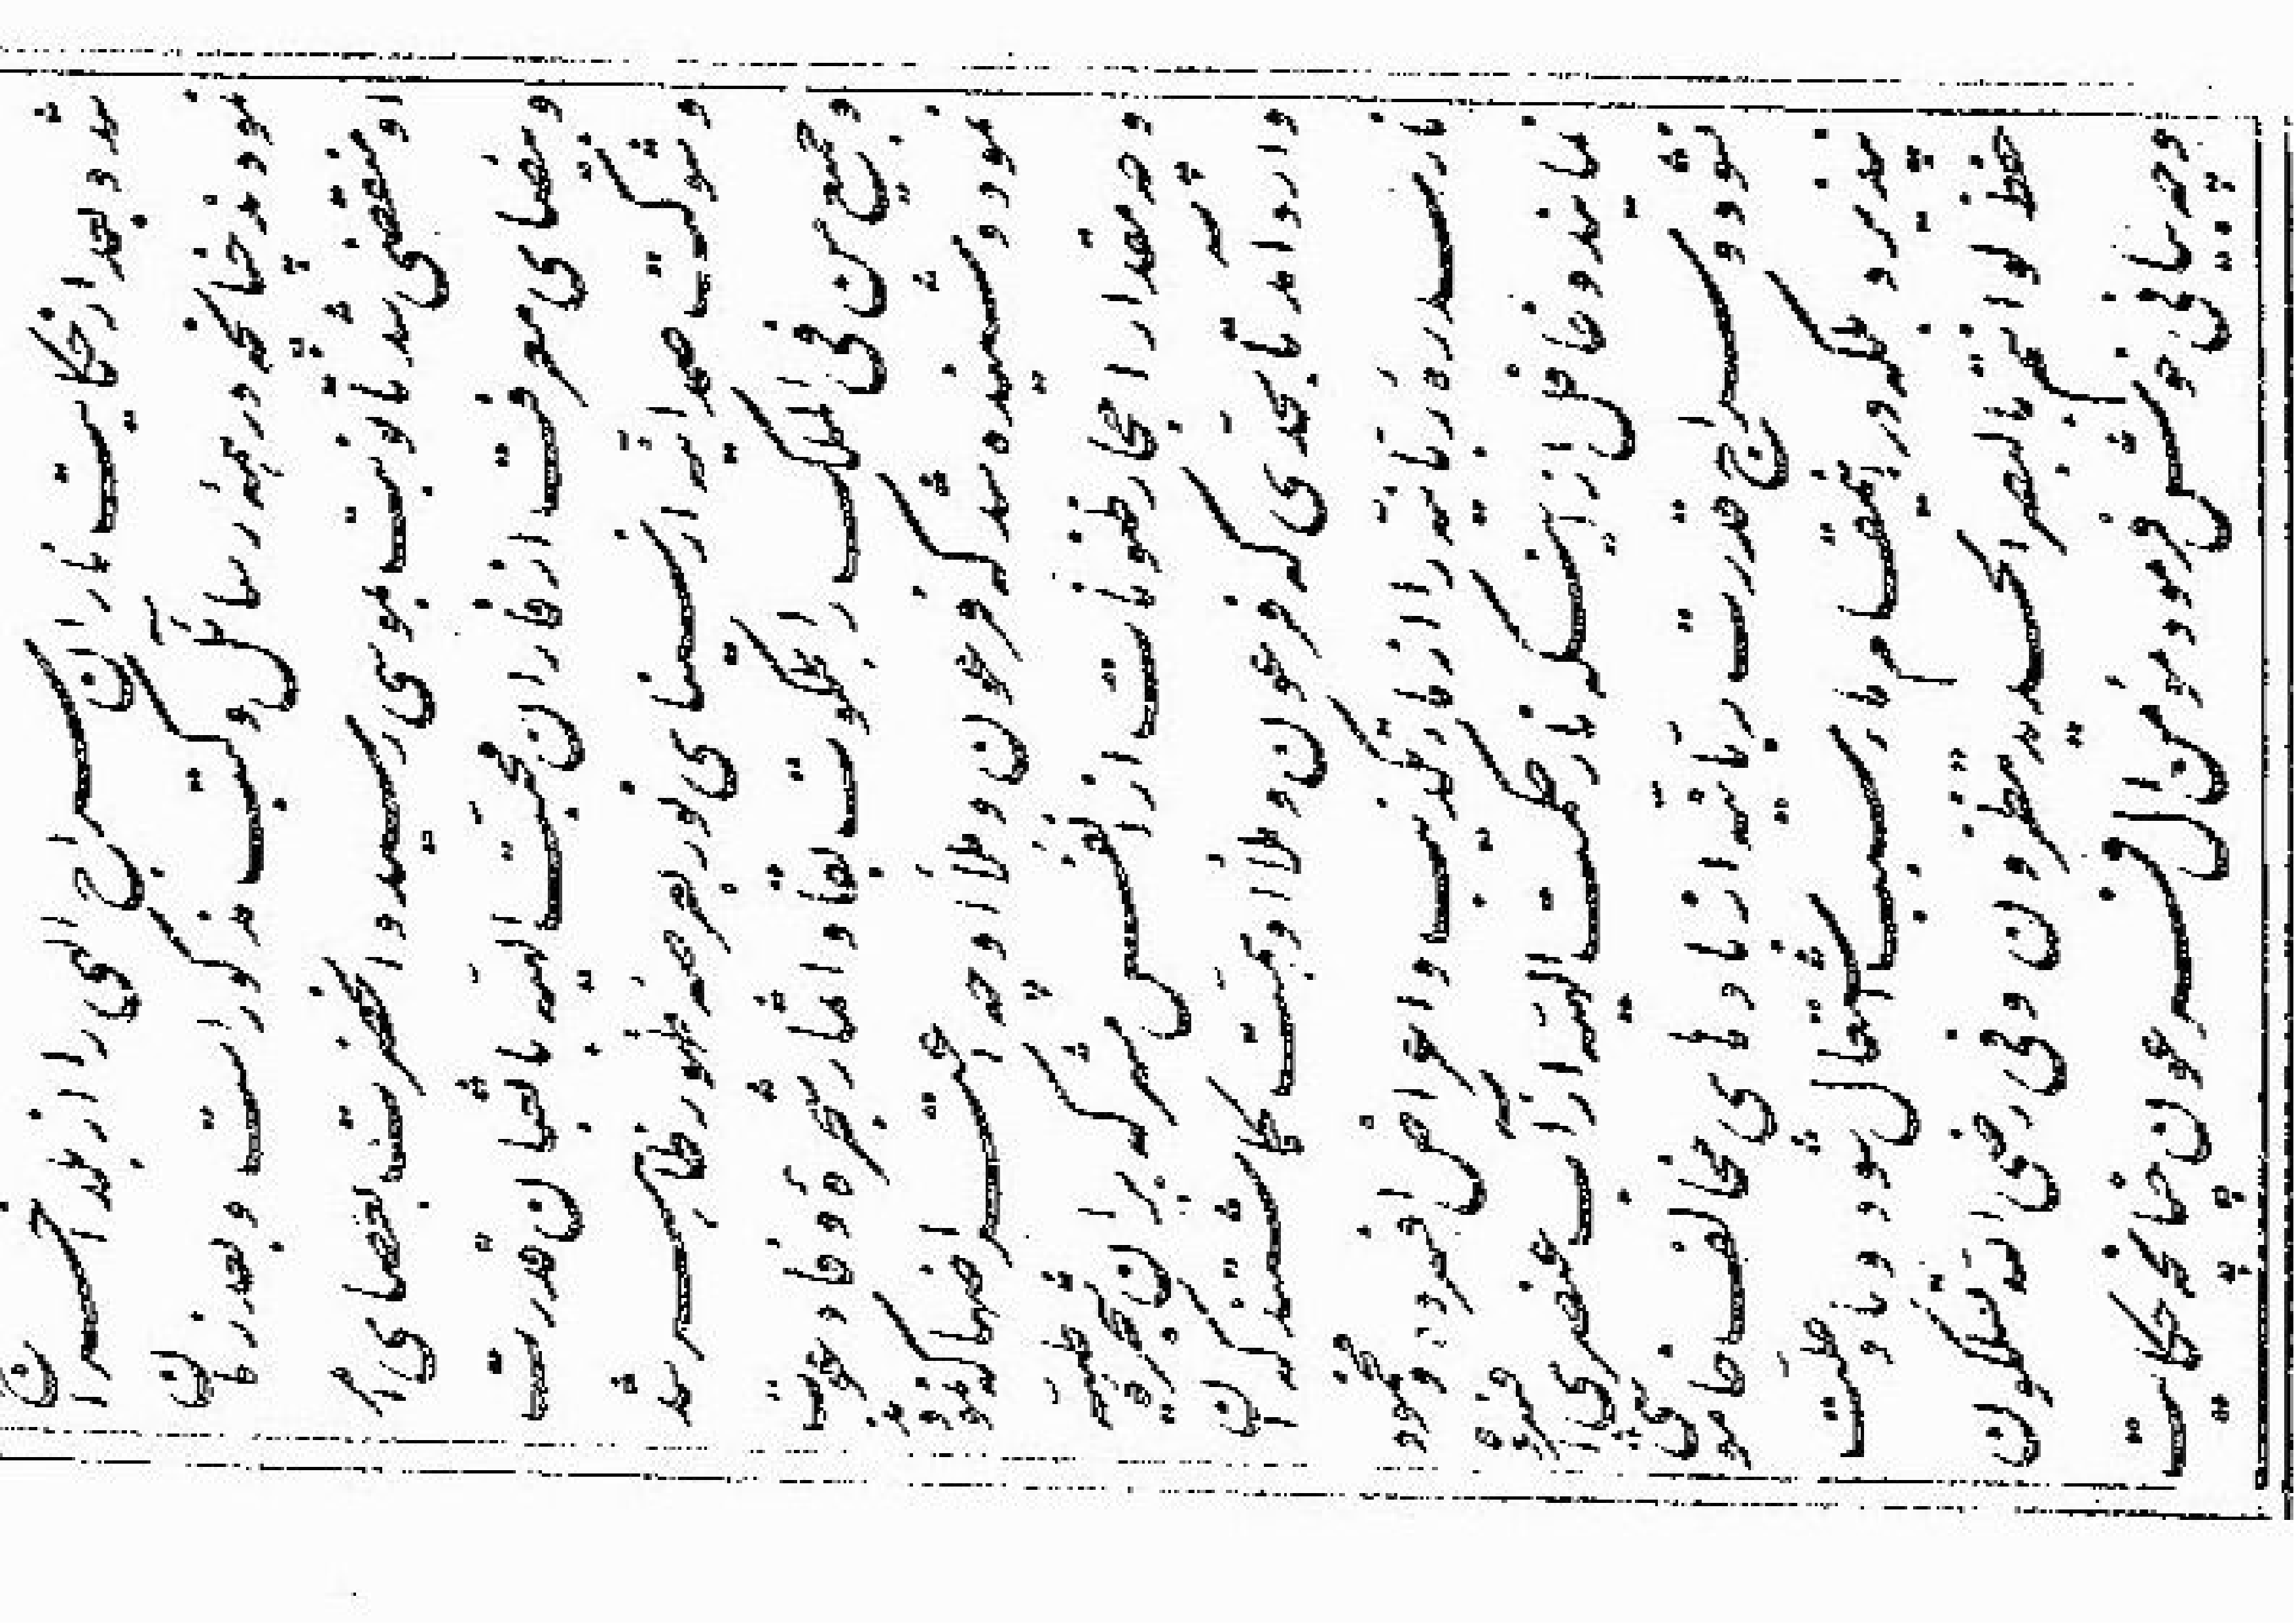 شد و بعد از حکایت نار ان سراج الهی را از بلد اخراج
نمودند چنانکه در همهٔ رسائل و کتب مذکور است و بعد زمان
او منقضی شد تا نوبت بموسی رسید و انحضرت بعصای امر
و بیضای معرفت از فاران محبت الهیه با ثعبان قدرت
و شوکت صمدانیه از سینای نور بعرصه ظهور ظاهر شد
و جمیع من فی الملک را بملکوت بقا و اثمار شجره وفا دعوت
نمود و شنیده شد که فرعون و ملأ او چه اعتراضها نمودند
و چه مقدار احجار ظنونات از انفس مشرکه بر ان شجره طیبه
وارد آمد تا بحدی که فرعون و ملأ او همت گماشتند که ان
نار سدره ربانیه را از ماء تکذیب و اعراض افسرده و مخمود
نمایند و غافل از اینکه نار حکمت الهیه از آب عنصری افسرده
نشود و سراج قدرت ربانیه از بادهای مخالف خاموشی
نپذیرد بلکه در این مقام ماء سبب اشتعال شود و باد علت
حفظ لو انتم بالبصر الحدید تنظرون و فی رضی الله تسلکون
و چه بیان خوشی فرمود مؤمن ال فرعون چنانچه حکایت